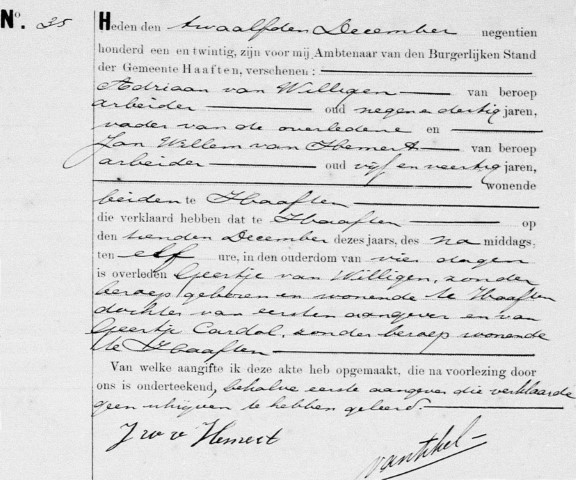 No. 35
Heden den twaalfden December negentien
honderd een en twintig, zijn voor mij Ambtenaar van den Burgerlijken Stand
der Gemeente Haaften, verschenen:
Adriaan van Willigen van beroep
arbeider oud negen en dertig jaren,
vader van de overledene en
Jan Willem van Hemert van beroep
arbeider oud vijf en veertig jaren,
wonende
beiden te Haaften
die verklaard hebben dat te Haaften op
den tienden December dezes jaars, des na middags,
ten elf ure, in den ouderdom van vier dagen
is overleden Geertje van Willigen, zonder
beroep geboren en wonende te Haaften
dochter van eersten aangever en van
Geertje Cardol, zonder beroep wonende
te Haaften
Van welke aangifte ik deze akte heb opgemaakt, die na voorlezing door
ons is onderteekend, behalve eerste aangever die verklaarde
geen schrijven te hebben geleerd.
J W v Hemert